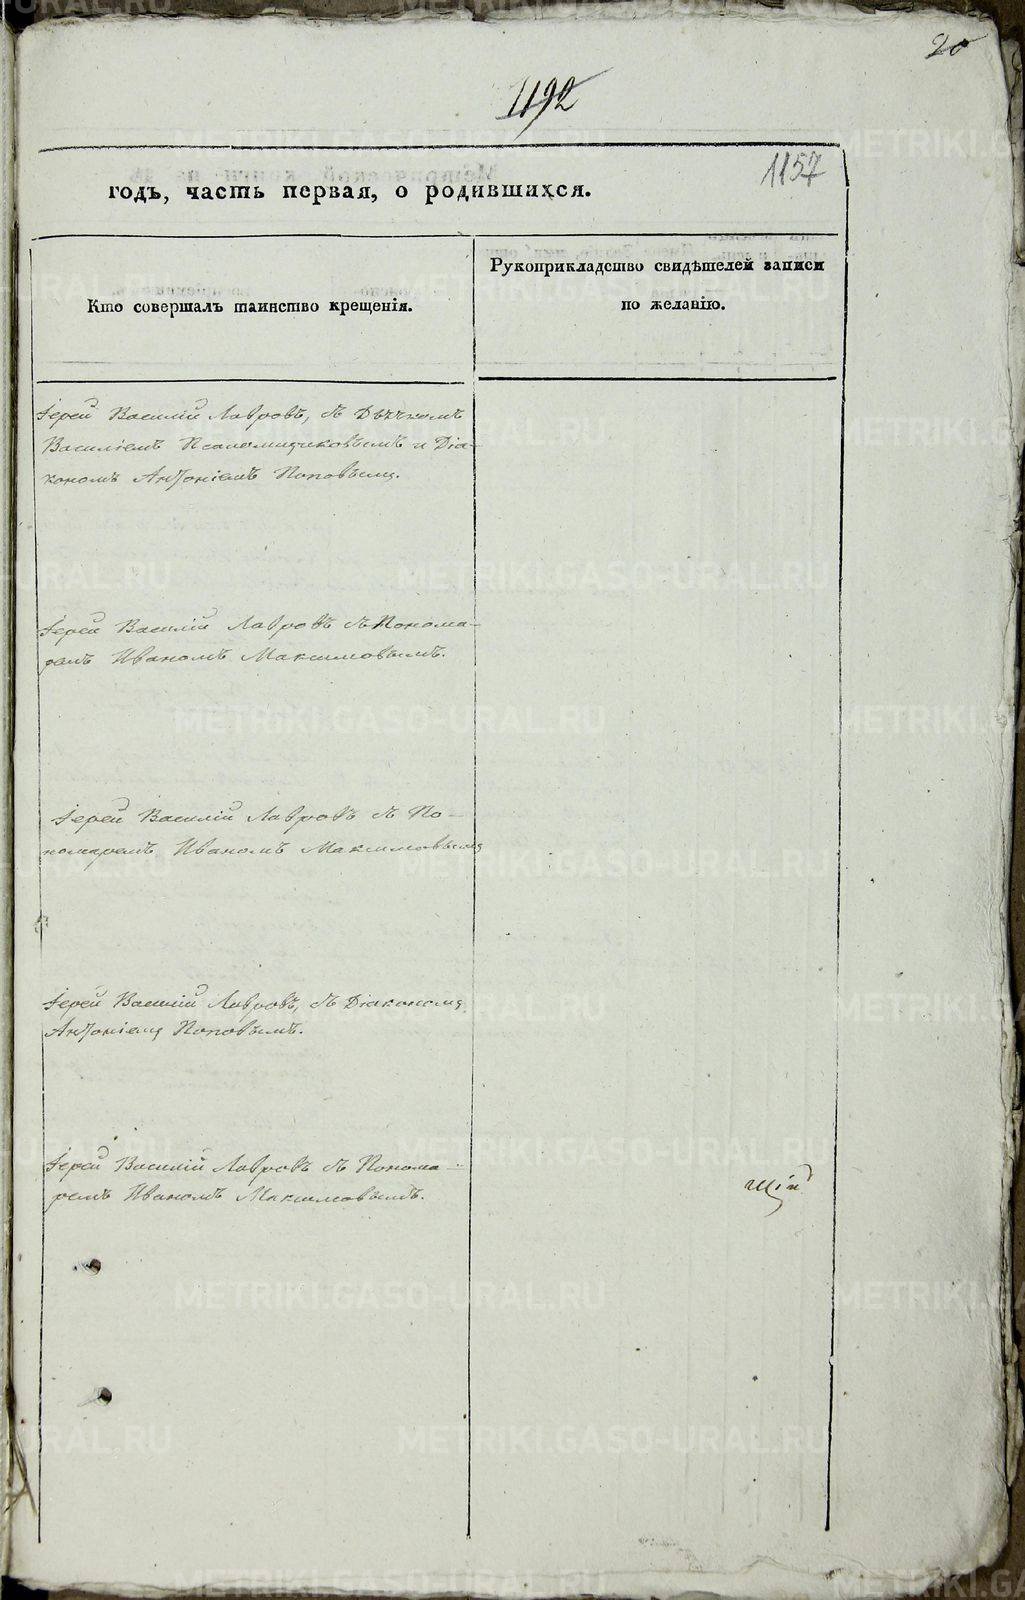 20
1192
1157
годъ, часть первая, о родившихся.
Кто совершалъ таинство крещенія.
Рукоприкладство свидѣтелей записи
по желанію.
Іерей Василій Лавровъ, съ Дьячкомъ
Василіемъ Псаломщиковымъ и Діа-
кономъ Антоніемъ Поповымъ.
Іерей Василій Лавровъ съ Понома-
ремъ Иваномъ Максимовымъ.
Іерей Василій Лавровъ съ По-
номаремъ Иваномъ Максимовымъ
Іерей Василій Лавровъ, съ Діакономъ
Антоніемъ Поповымъ.
Іерей Василій Лавровъ съ Понома-
ремъ Иваномъ Максимовымъ.
щій
METRIKI.GASO-URAL.RU